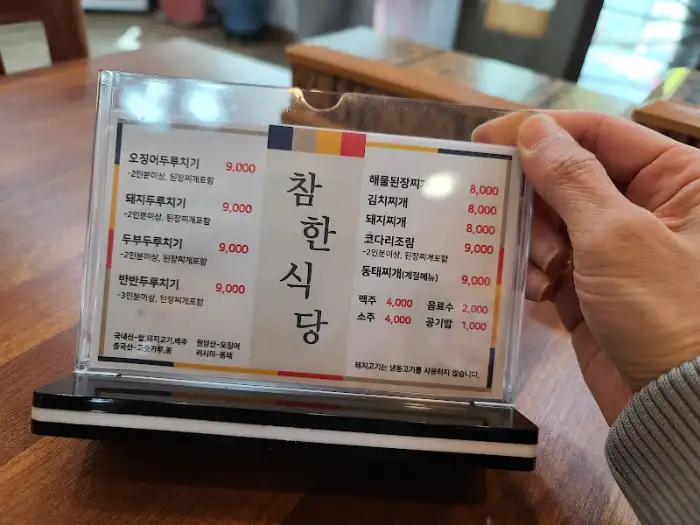 오징어두루치기 9,000
-2인분이상, 된장찌개포함
돼지두루치기 9,000
-2인분이상, 된장찌개포함
두부두루치기 9,000
-2인분이상, 된장찌개포함
반반두루치기 9,000
-3인분이상, 된장찌개포함
국내산-쌀,돼지고기,배추 원양산-오징어
중국산-고춧가루,콩 러시아-동태
참한식당
해물된장찌개 8,000
김치찌개 8,000
돼지찌개 8,000
코다리조림 9,000
-2인분이상, 된장찌개포함
동태찌개(계절메뉴) 9,000
맥주 4,000 음료수 2,000
소주 4,000 공기밥 1,000
돼지고기는 냉동고기를 사용하지 않습니다.